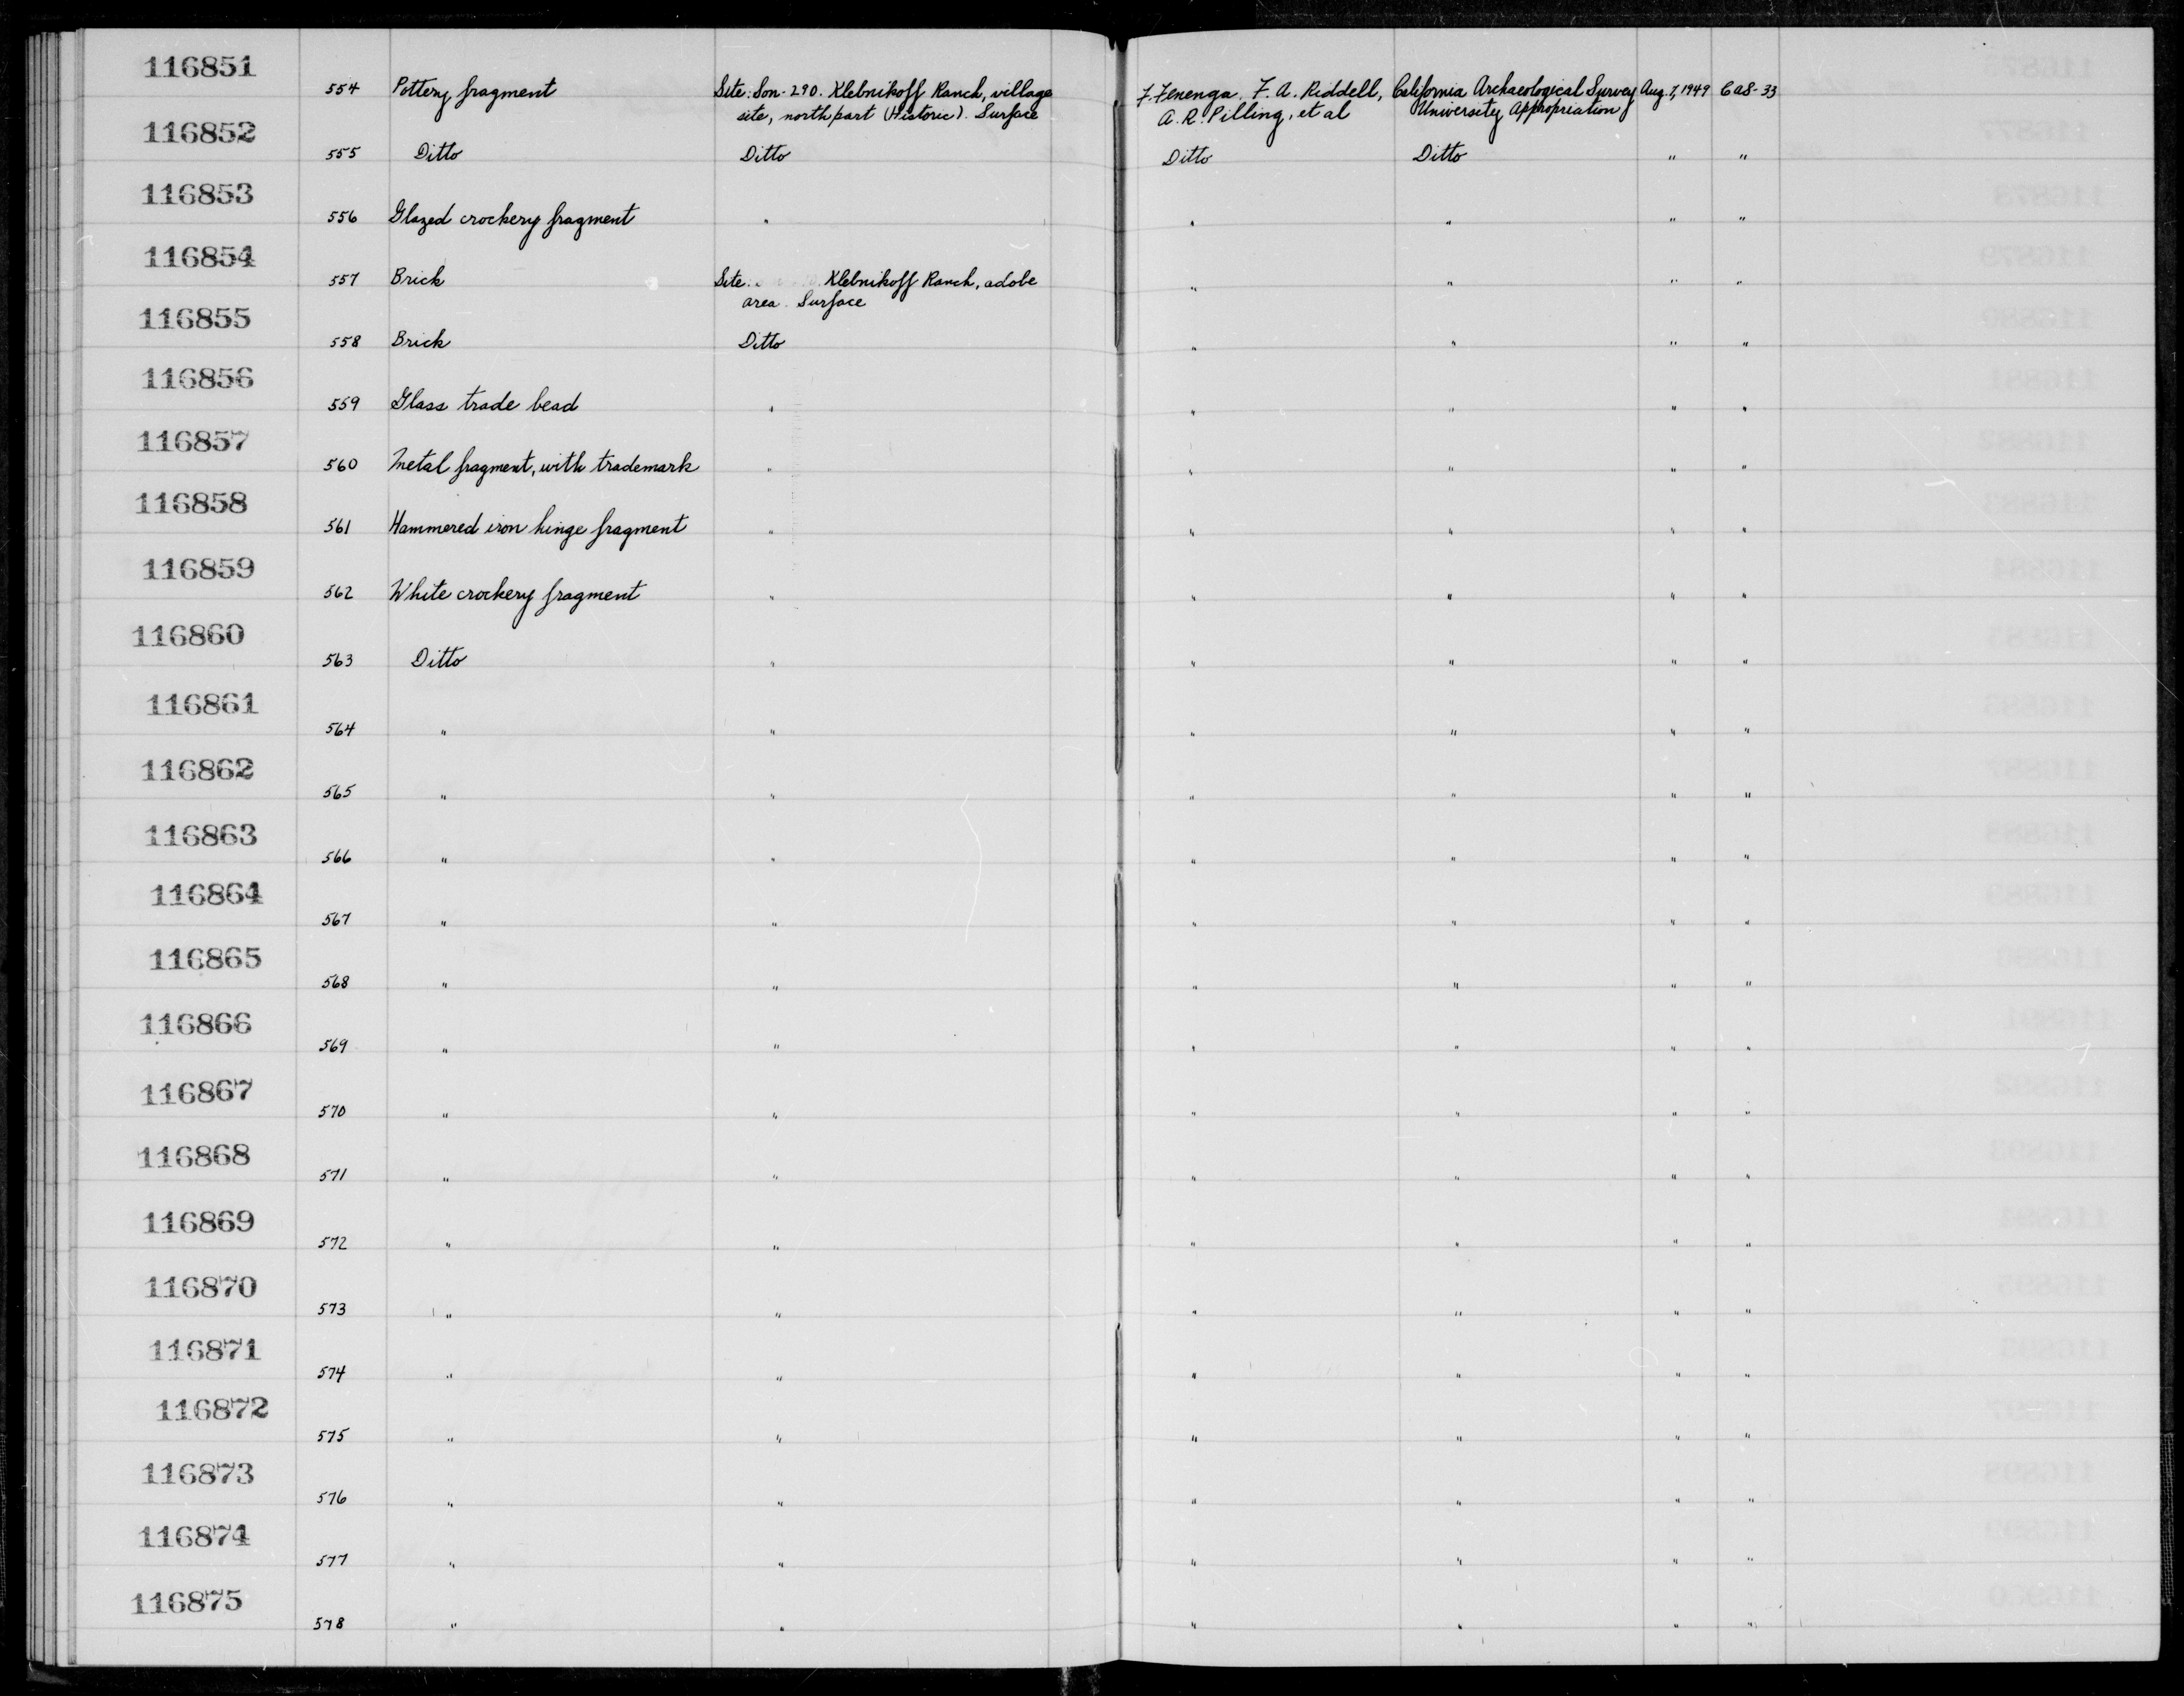 116851
554 Pottery fragment Site: Son-290. Klebnikoff Ranch, village F. Fenenga, F. A. Riddell, California Archaeological Survey Aug. 7, 1949 CAS-33
site, north part (Historic). Surface A. R. Pilling, et al University Appropriation
116852
555 Ditto Ditto Ditto Ditto " "
116853
556 Glazed crockery fragment " " " " "
116854
557 Brick Site: Klebnikoff Ranch, adobe " " " "
area. Surface
116855
558 Brick Ditto " " " "
116856
559 Glass trade bead " " " " "
116857
560 Metal fragment, with trademark " " " " "
116858
561 Hammered iron hinge fragment " " " " "
116859
562 White crockery fragment " " " " "
116860
563 Ditto " " " " "
116861
564 " " " " " "
116862
565 " " " " " "
116863
566 " " " " " "
116864
567 " " " " " "
116865
568 " " " " " "
116866
569 " " " " " "
116867
570 " " " " " "
116868
571 " " " " " "
116869
572 " " " " " "
116870
573 " " " " " "
116871
574 " " " " " "
116872
575 " " " " " "
116873
576 " " " " " "
116874
577 " " " " " "
116875
578 " " " " " "